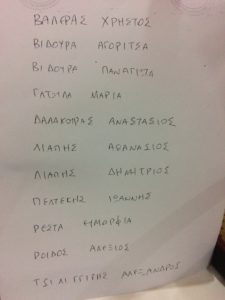 ΒΑΛΕΡΑΣ ΧΡΗΣΤΟΣ
ΒΙΔΟΥΡΑ ΑΓΟΡΙΤΣΑ
ΒΙΔΟΥΡΑ ΠΑΝΑΓΙΤΣΑ
ΜΑΡΙΑ
ΔΑΛΑΚΟΥΡΑΣ ΑΝΑΣΤΑΣΙΟΣ
ΛΙΑΠΗΣ ΑΘΑΝΑΣΙΟΣ
ΛΙΑΠΗΣ ΔΗΜΗΤΡΙΟΣ
ΠΕΛΤΕΚΗΣ ΙΩΑΝΝΗΣ
ΡΕΣΤΑ ΕΥΜΟΡΦΙΑ
ΡΟΙΔΟΣ ΑΛΕΞΙΟΣ
ΑΛΕΞΑΝΔΡΟΣ